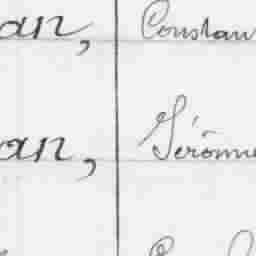 an, Constan
an, Jérôme